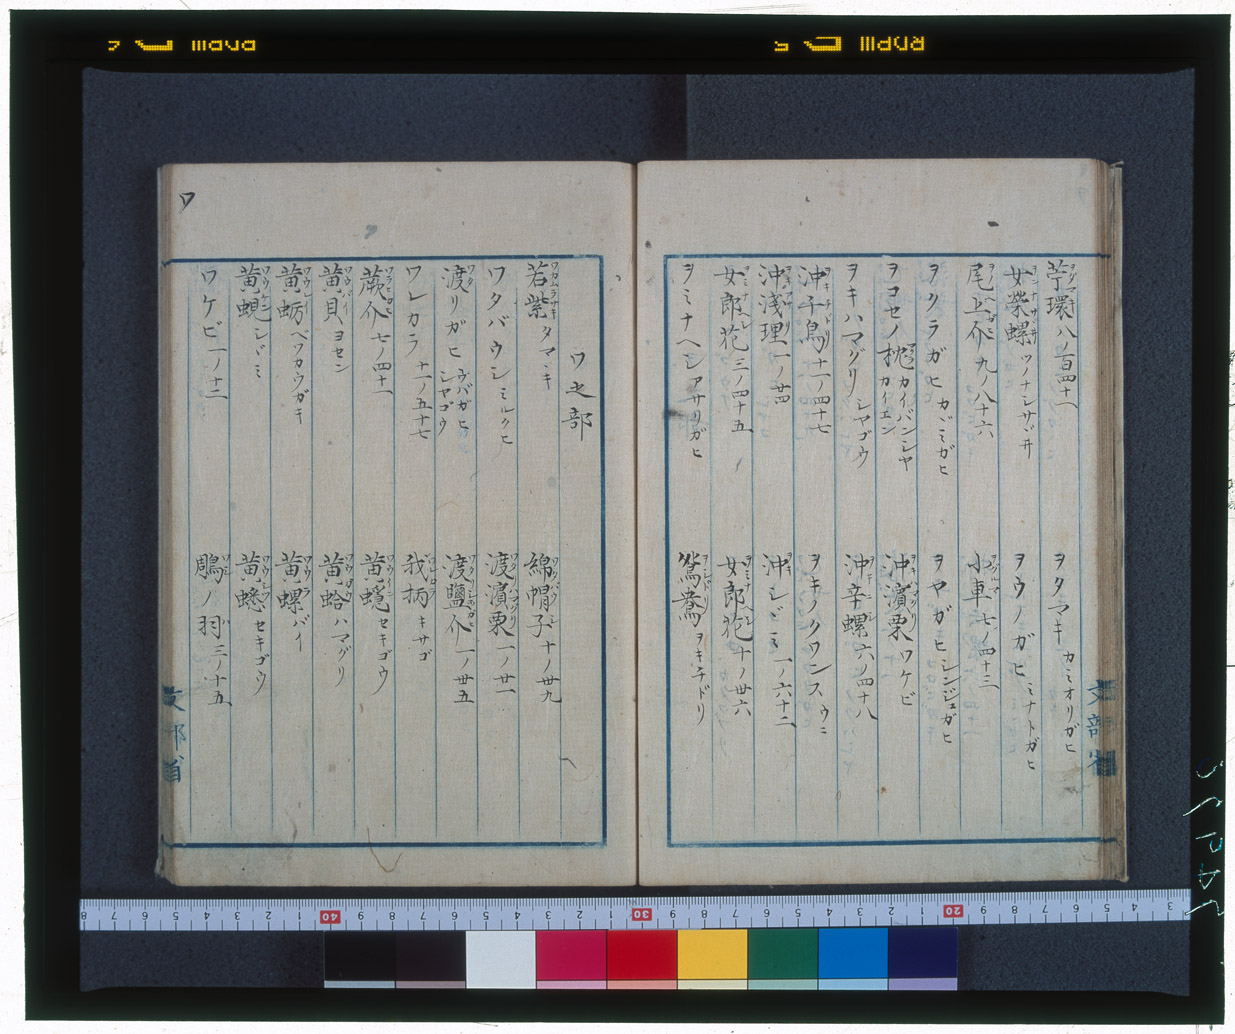 苧環 八ノ百四十一
ヲタマキ カミオリガヒ
女榮螺 ツノナシサヾヰ
ヲウノガヒ ミナトガヒ
尾上介 九ノ八十六
小車 七ノ四十三
ヲクラガヒ カヾミガヒ
ヲヤガヒ シンジユガヒ
ヲコセノ枕 カイバンシヤ カイエン
沖濱栗 ワケビ
ヲキハマグリ シヤゴウ
沖辛螺 六ノ四十八
沖子鳥 十一ノ四十七
ヲキノクワンス ウミ
沖淺理 一ノ廿四
沖シヾミ 一ノ六十二
女郎花 三ノ四十五
女郎花 十ノ卅六
ヲミナヘシ アサリガヒ
鴛鴦 ヲキチドリ
文部省
ワ之部
若紫 タマキ
綿帽子 十ノ卅九
ワタバウシ ミルクヒ
渡濱栗 一ノ廿一
渡リガヒ ウバガヒ シヤゴウ
渡鹽介 一ノ廿五
ワレカラ 十一ノ五十七
我柄 キサゴ
蕨介 七ノ四十一
黄螺 セキゴウ
黄貝 ヨセン
黄蛤 ハマグリ
黄蛎 ベワカウガキ
黄螺 バイ
黄蜆 シヾミ
黄蟋 セキゴウ
ワケビ 一ノ十二
鵰ノ羽 三ノ十五
ワ
文部省